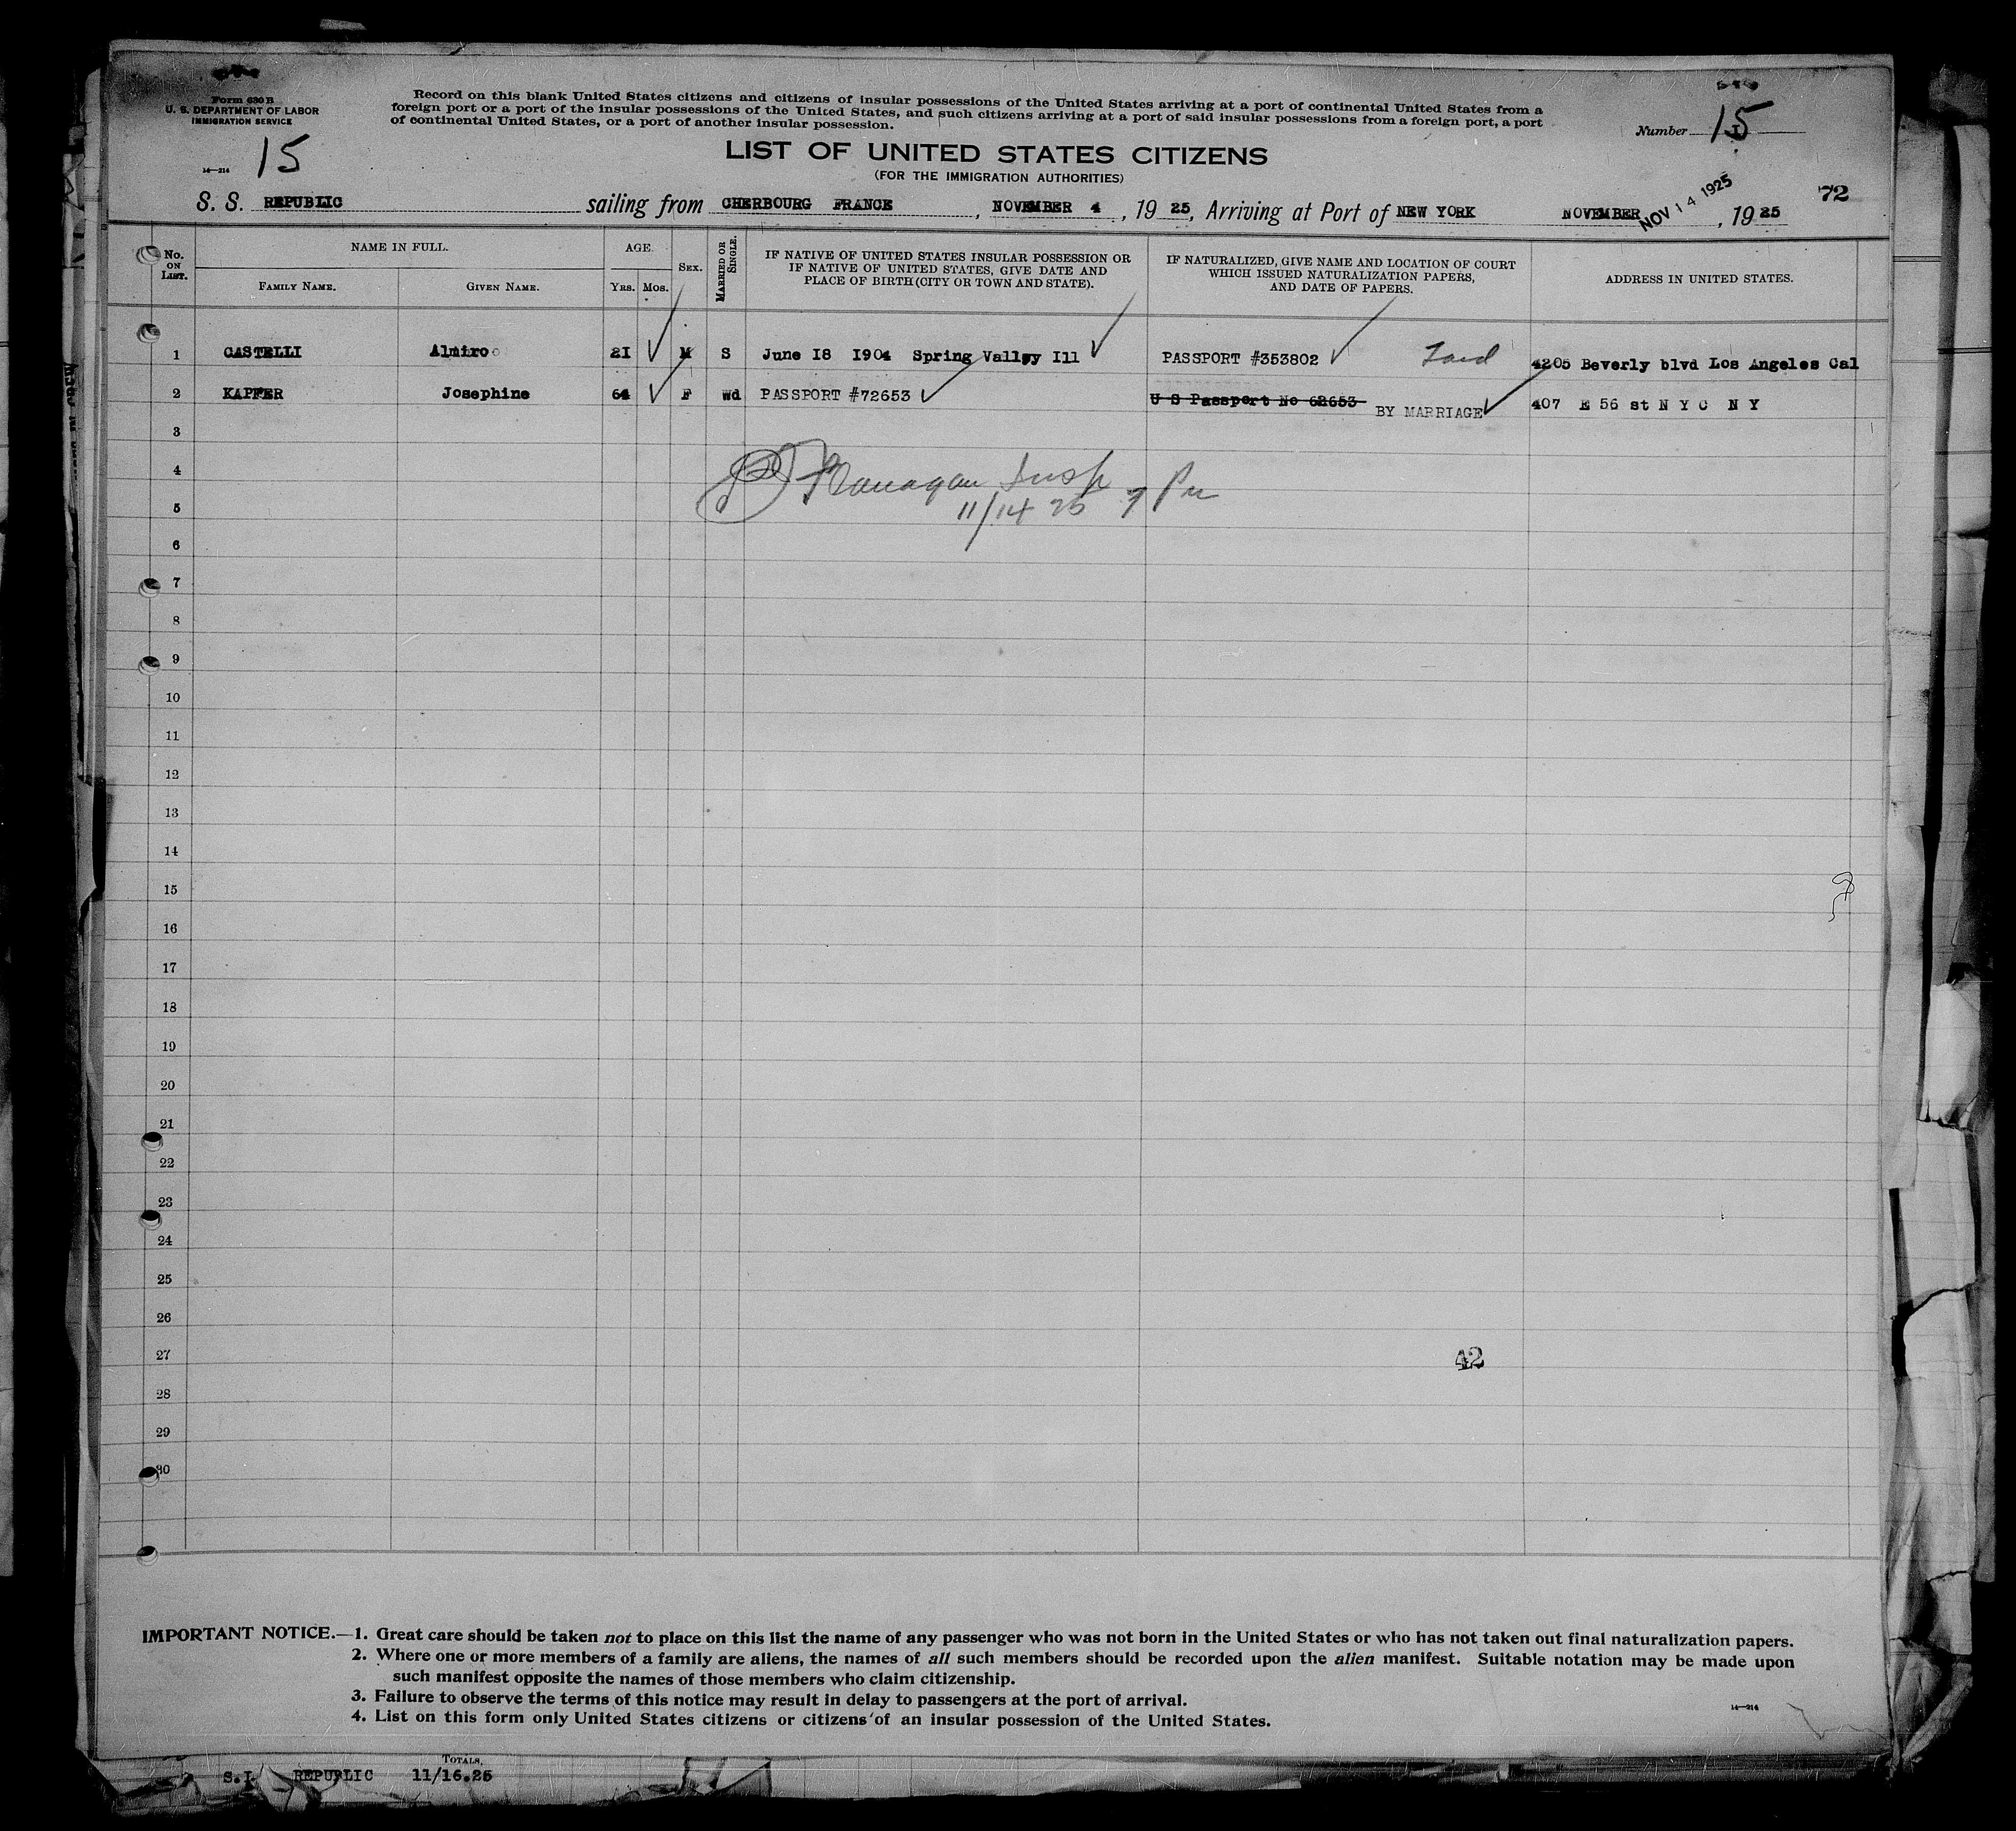 Form 630 B
U. S. DEPARTMENT OF LABOR
IMMIGRATION SERVICE
14—214
15
Record on this blank United States citizens and citizens of insular possessions of the United States arriving at a port of continental United States from a
foreign port or a port of the insular possessions of the United States, and such citizens arriving at a port of said insular possessions from a foreign port, a port
of continental United States, or a port of another insular possession.
Number 15
LIST OF UNITED STATES CITIZENS
(FOR THE IMMIGRATION AUTHORITIES)
72
S. S. REPUBLIC sailing from CHERBOURG FRANCE, NOVEMBER 4, 1925, Arriving at Port of NEW YORK NOVEMBER NOV 14 1925, 1925
No. ON LIST.
NAME IN FULL.
FAMILY NAME.
GIVEN NAME.
AGE.
YRS.
MOS.
SEX.
MARRIED OR SINGLE.
IF NATIVE OF UNITED STATES INSULAR POSSESSION OR
IF NATIVE OF UNITED STATES, GIVE DATE AND
PLACE OF BIRTH (CITY OR TOWN AND STATE).
IF NATURALIZED, GIVE NAME AND LOCATION OF COURT
WHICH ISSUED NATURALIZATION PAPERS,
AND DATE OF PAPERS.
ADDRESS IN UNITED STATES.
1 CASTELLI Almiro 21 M S June 18 1904 Spring Valley Ill PASSPORT #353802 4205 Beverly blvd Los Angeles Cal
2 KAPFER Josephine 64 F wd PASSPORT #72653 U S Passport No 62653 BY MARRIAGE 407 E 56 st N Y C N Y
3
4
Flanagan Insp
5
11/14 25 7 Pm
6
7
8
9
10
11
12
13
14
15
16
17
18
19
20
21
22
23
24
25
26
27
42
28
29
30
IMPORTANT NOTICE.—1. Great care should be taken not to place on this list the name of any passenger who was not born in the United States or who has not taken out final naturalization papers.
2. Where one or more members of a family are aliens, the names of all such members should be recorded upon the alien manifest. Suitable notation may be made upon
such manifest opposite the names of those members who claim citizenship.
3. Failure to observe the terms of this notice may result in delay to passengers at the port of arrival.
4. List on this form only United States citizens or citizens of an insular possession of the United States.
14—214
TOTALS.
S.I. REPUBLIC 11/16.25